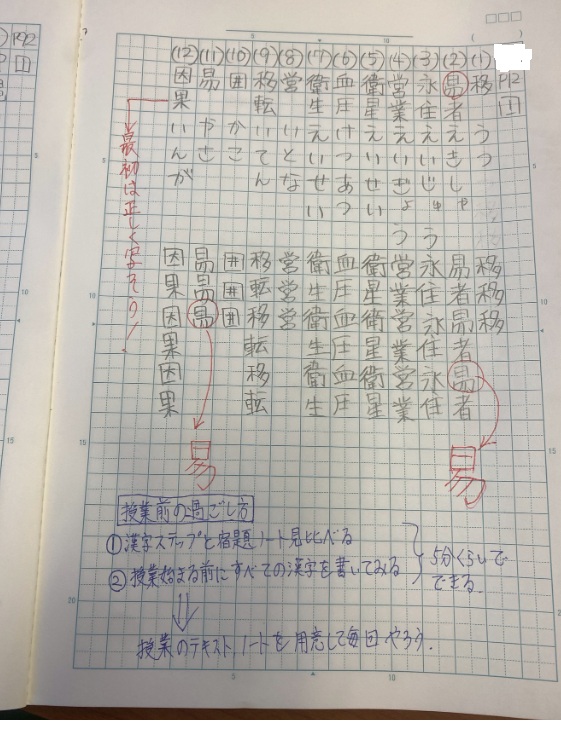 P12
1
(1) 移 うつ 移移移
(2) 易者 えきしゃ 易者易者易者
(3) 永住 えいじゅう 永住永住永住
(4) 営業 えいぎょう 営業営業営業
(5) 衛星 えいせい 衛星衛星衛星
(6) 血圧 けつあつ 血圧血圧血圧
(7) 衛生 えいせい 衛生衛生衛生
(8) 営 いとな 営営営
(9) 移転 いてん 移転移転移転
(10) 囲 かこ 囲囲囲
(11) 易 やさ 易易易
(12) 因果 いんが 因果因果因果
最初は正しく写そう!
易
易
授業前の過ごし方
① 漢字ステップと宿題ノート見比べる
② 授業始まる前にすべての漢字を書いてみる
5分くらいで
できる
授業のテキスト、ノートを用意して毎回やろう.